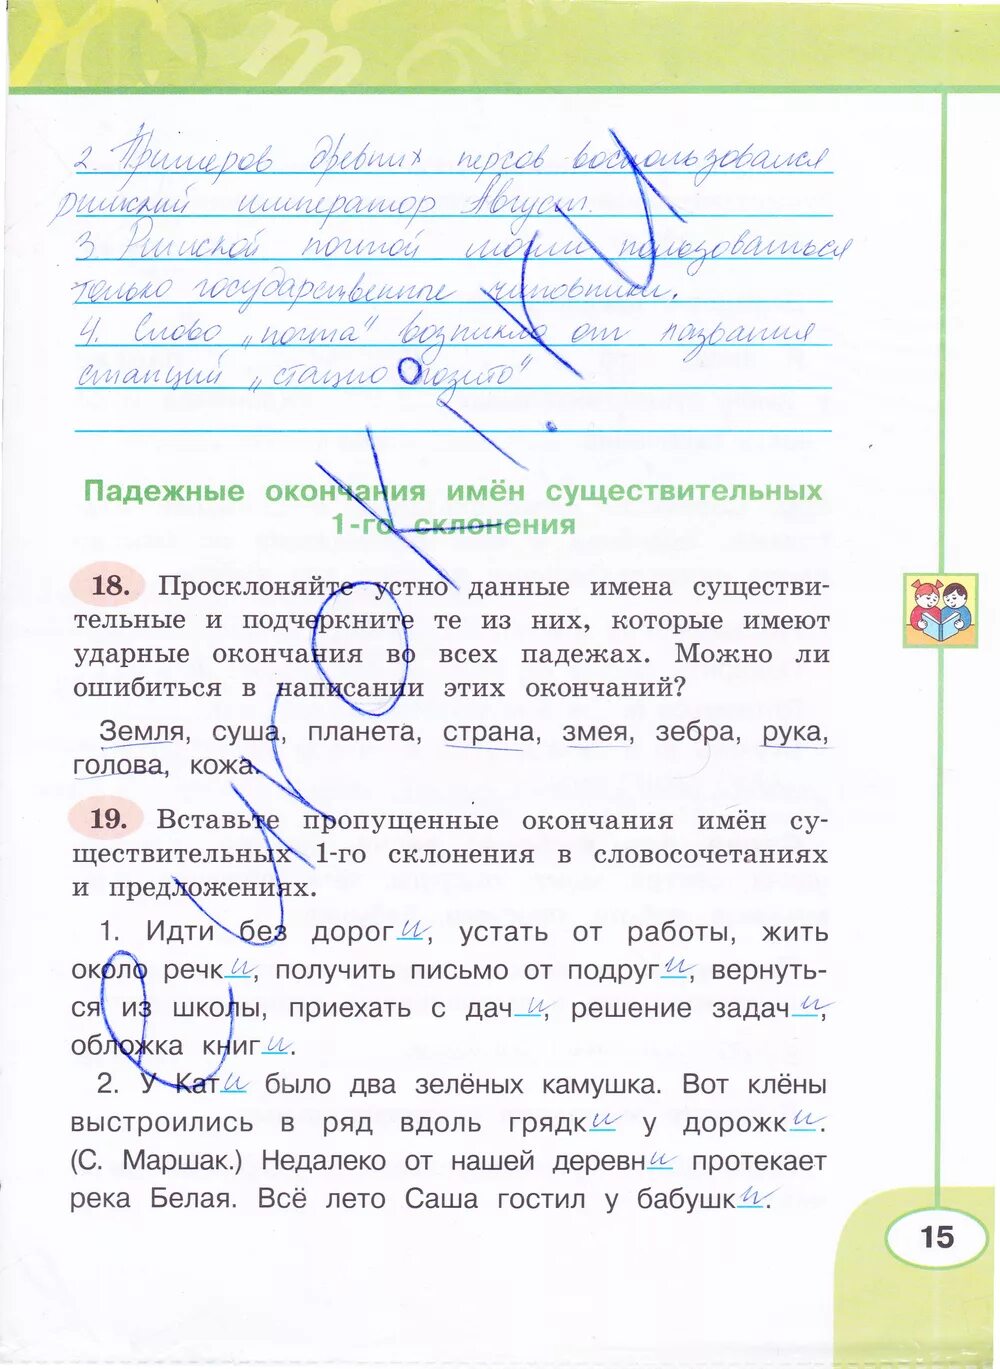 2. Примеров древних персов воспользовался
римский император Август.
3. Римской почтой могли пользоваться
только государственные чиновники.
4. Слово „почта" возникло от названия
станций „стацио позито"
е уроки.ru
Падежные окончания имён существительных
1-го склонения
18. Просклоняйте устно данные имена существи-
тельные и подчеркните те из них, которые имеют
ударные окончания во всех падежах. Можно ли
ошибиться в написании этих окончаний?
Земля, суша, планета, страна, змея, зебра, рука,
голова, кожа.
19. Вставьте пропущенные окончания имён су-
ществительных 1-го склонения в словосочетаниях
и предложениях.
1. Идти без дороги, устать от работы, жить
около речки, получить письмо от подруги, вернуть-
ся из школы, приехать с дачи, решение задачи,
обложка книги.
2. У Кати было два зелёных камушка. Вот клёны
выстроились в ряд вдоль грядки у дорожки.
(С. Маршак.) Недалеко от нашей деревни протекает
река Белая. Всё лето Саша гостил у бабушки.
15